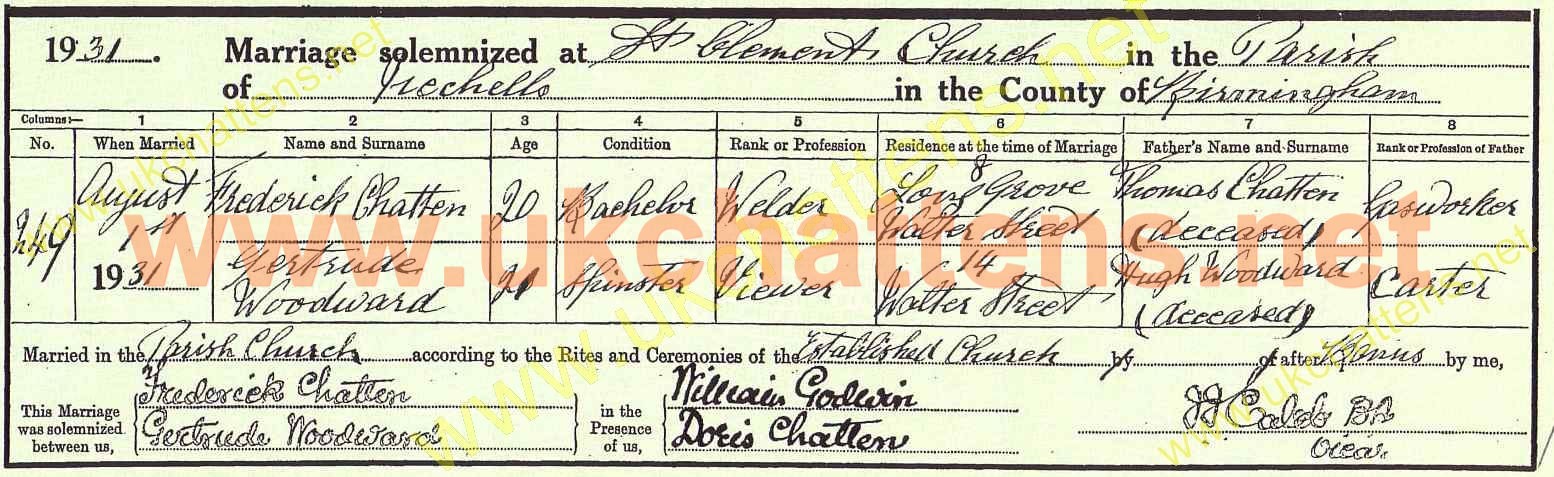 1931. Marriage solemnized at St Clement's Church in the Parish
of Nechells in the County of Birmingham
Columns:— 1 2 3 4 5 6 7 8
No. When Married Name and Surname Age Condition Rank or Profession Residence at the time of Marriage Father's Name and Surname Rank or Profession of Father
249 August 1st 1931 Frederick Chatten 20 Bachelor Welder 8 Long Grove Walter Street Thomas Chatten (deceased) Gasworker
Gertrude Woodward 21 Spinster Viewer 14 Walter Street Hugh Woodward (deceased) Carter
Married in the Parish Church according to the Rites and Ceremonies of the Established Church by or after Banns by me,
This Marriage was solemnized between us, Frederick Chatten in the Presence of us, William Godwin Caleb BA
Gertrude Woodward Doris Chatten Vicar
www.ukchattens.net
www.ukchattens.net
www.ukchattens.net
www.ukchattens.net
www.ukchattens.net